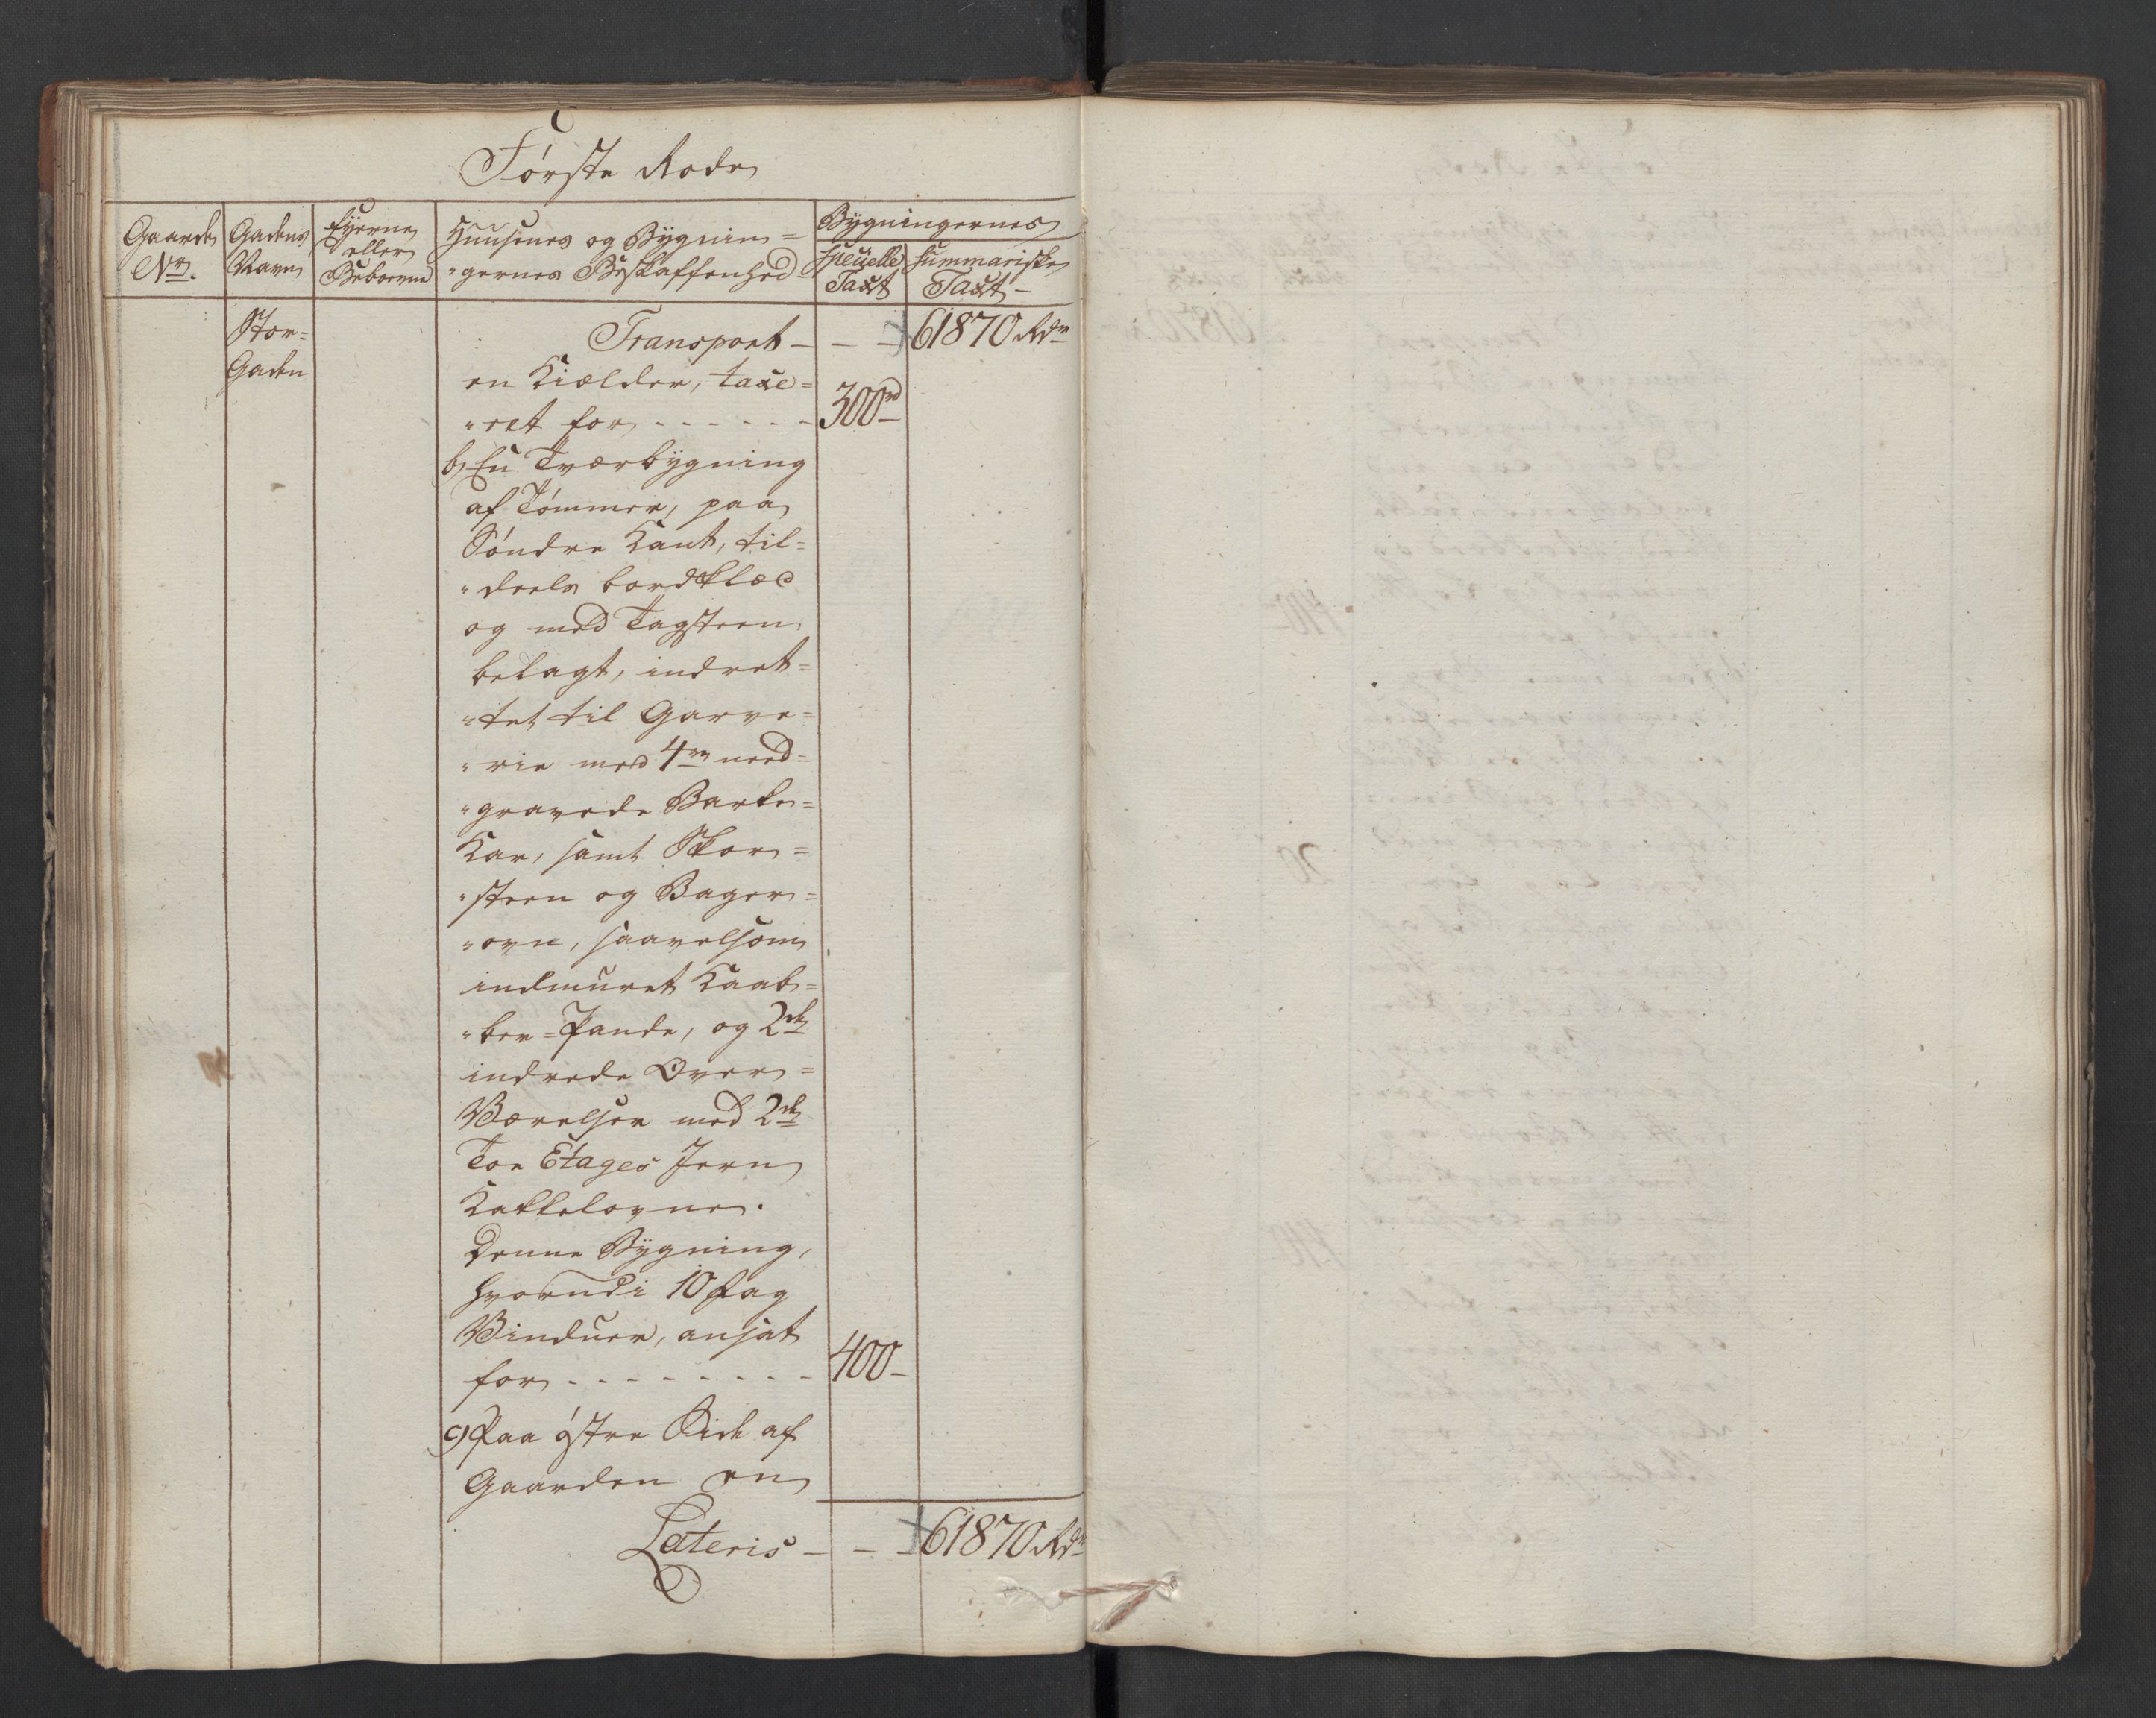 Første Rode
Gaardens No.
Gadens Navn
Eyerne eller Beboerne
Huusenes og Bygnin=
"gernes Beskaffenhed
Bygningernes
specielle Taxt
summariske Taxt
Stor=
Gaden
Transport - - - 61870 Rdr
en Kiælder, taxe=
"ret for - - - - - - 300rd
b) En Tværbygning
af Tømmer, paa
Søndre Kant, til=
"deels bordklæd
og med Tagsteen
belagt, indret=
"tet til Garve=
"rie med 4re need=
"gravede Barke=
Kar, samt Skor=
"steen og Bager=
"ovn, saavelsom
indmuret Kaab=
"ber=Pande, og 2de
indrede Over=
Værelser med 2de
Toe Etages Jern
Kakkelovne.
Denne Bygning,
hvorudi 10 Fag
Vinduer, ansat
for - - - - - - - - 400-
c) Paa østre Side af
Gaarden en
Lateris - - - 61870 Rdr